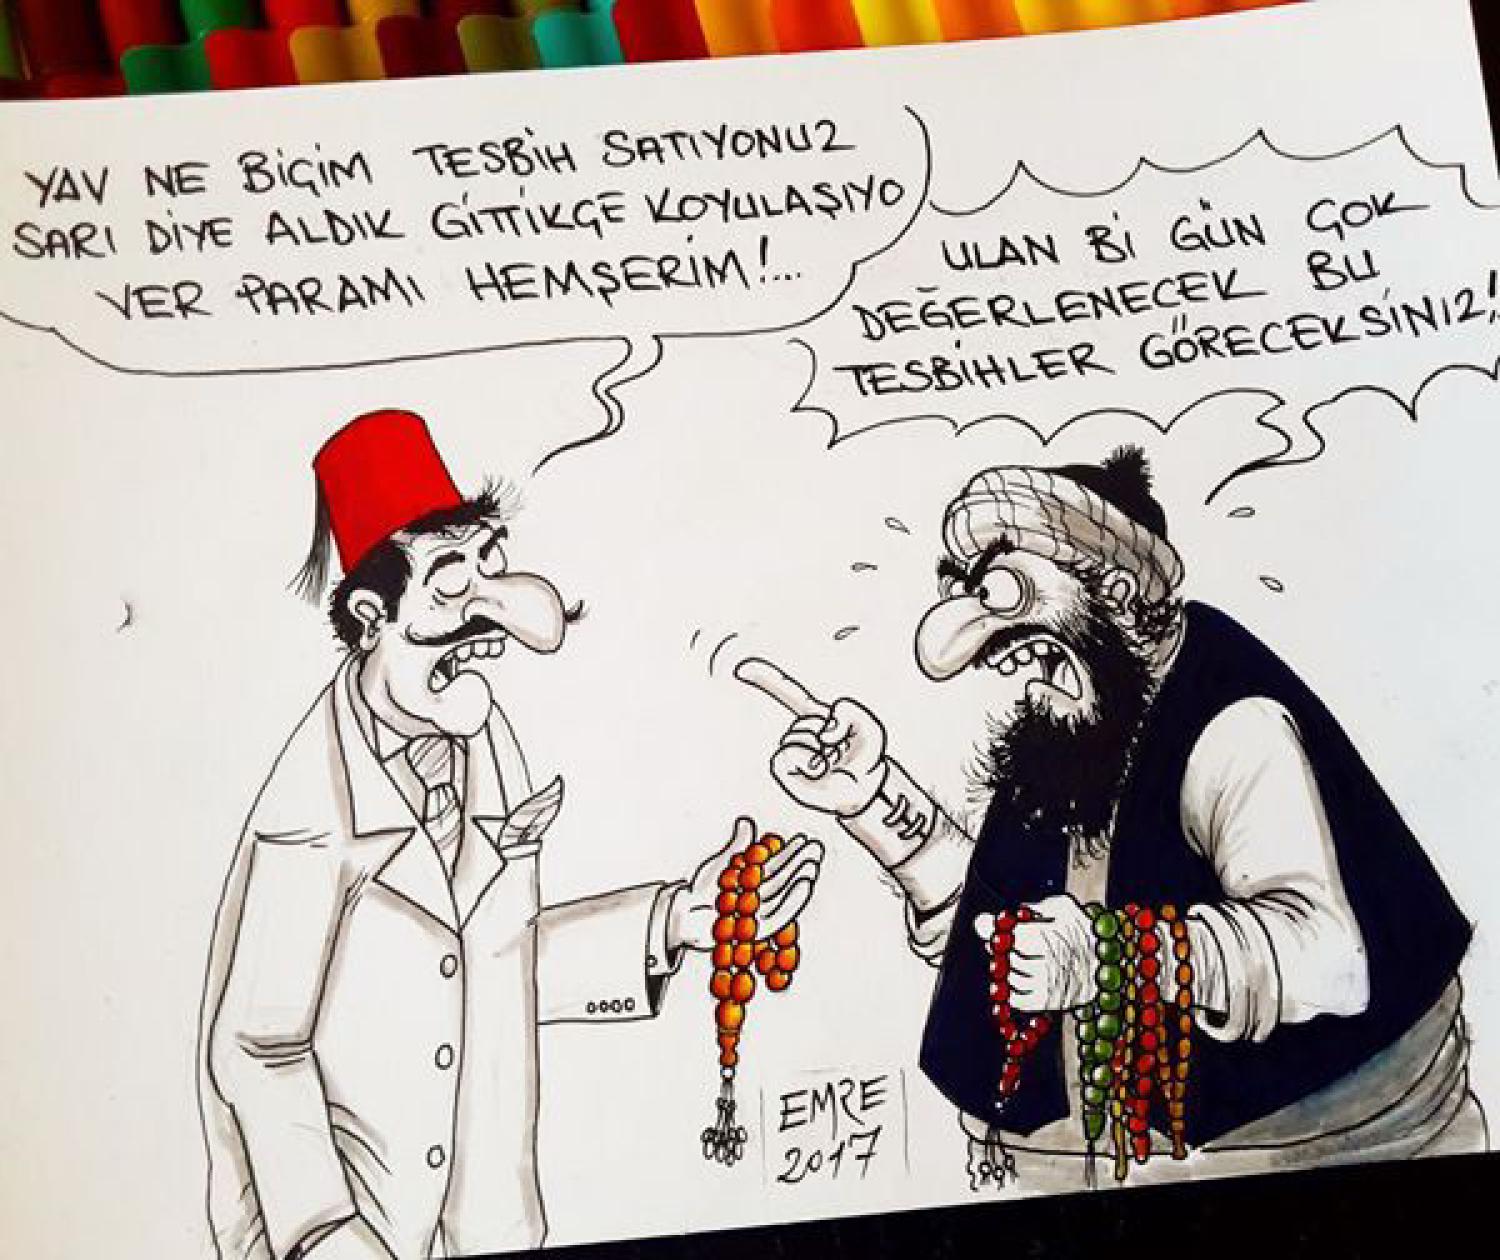 YAV NE BİÇİM TESBİH SATIYONUZ
SARI DİYE ALDIK GİTTİKÇE KOYULAŞIYO
VER PARAMI HEMŞERİM!...
ULAN Bİ GÜN ÇOK
DEĞERLENECEK BU
TESBİHLER GÖRECEKSİNİZ!
EMRE
2017